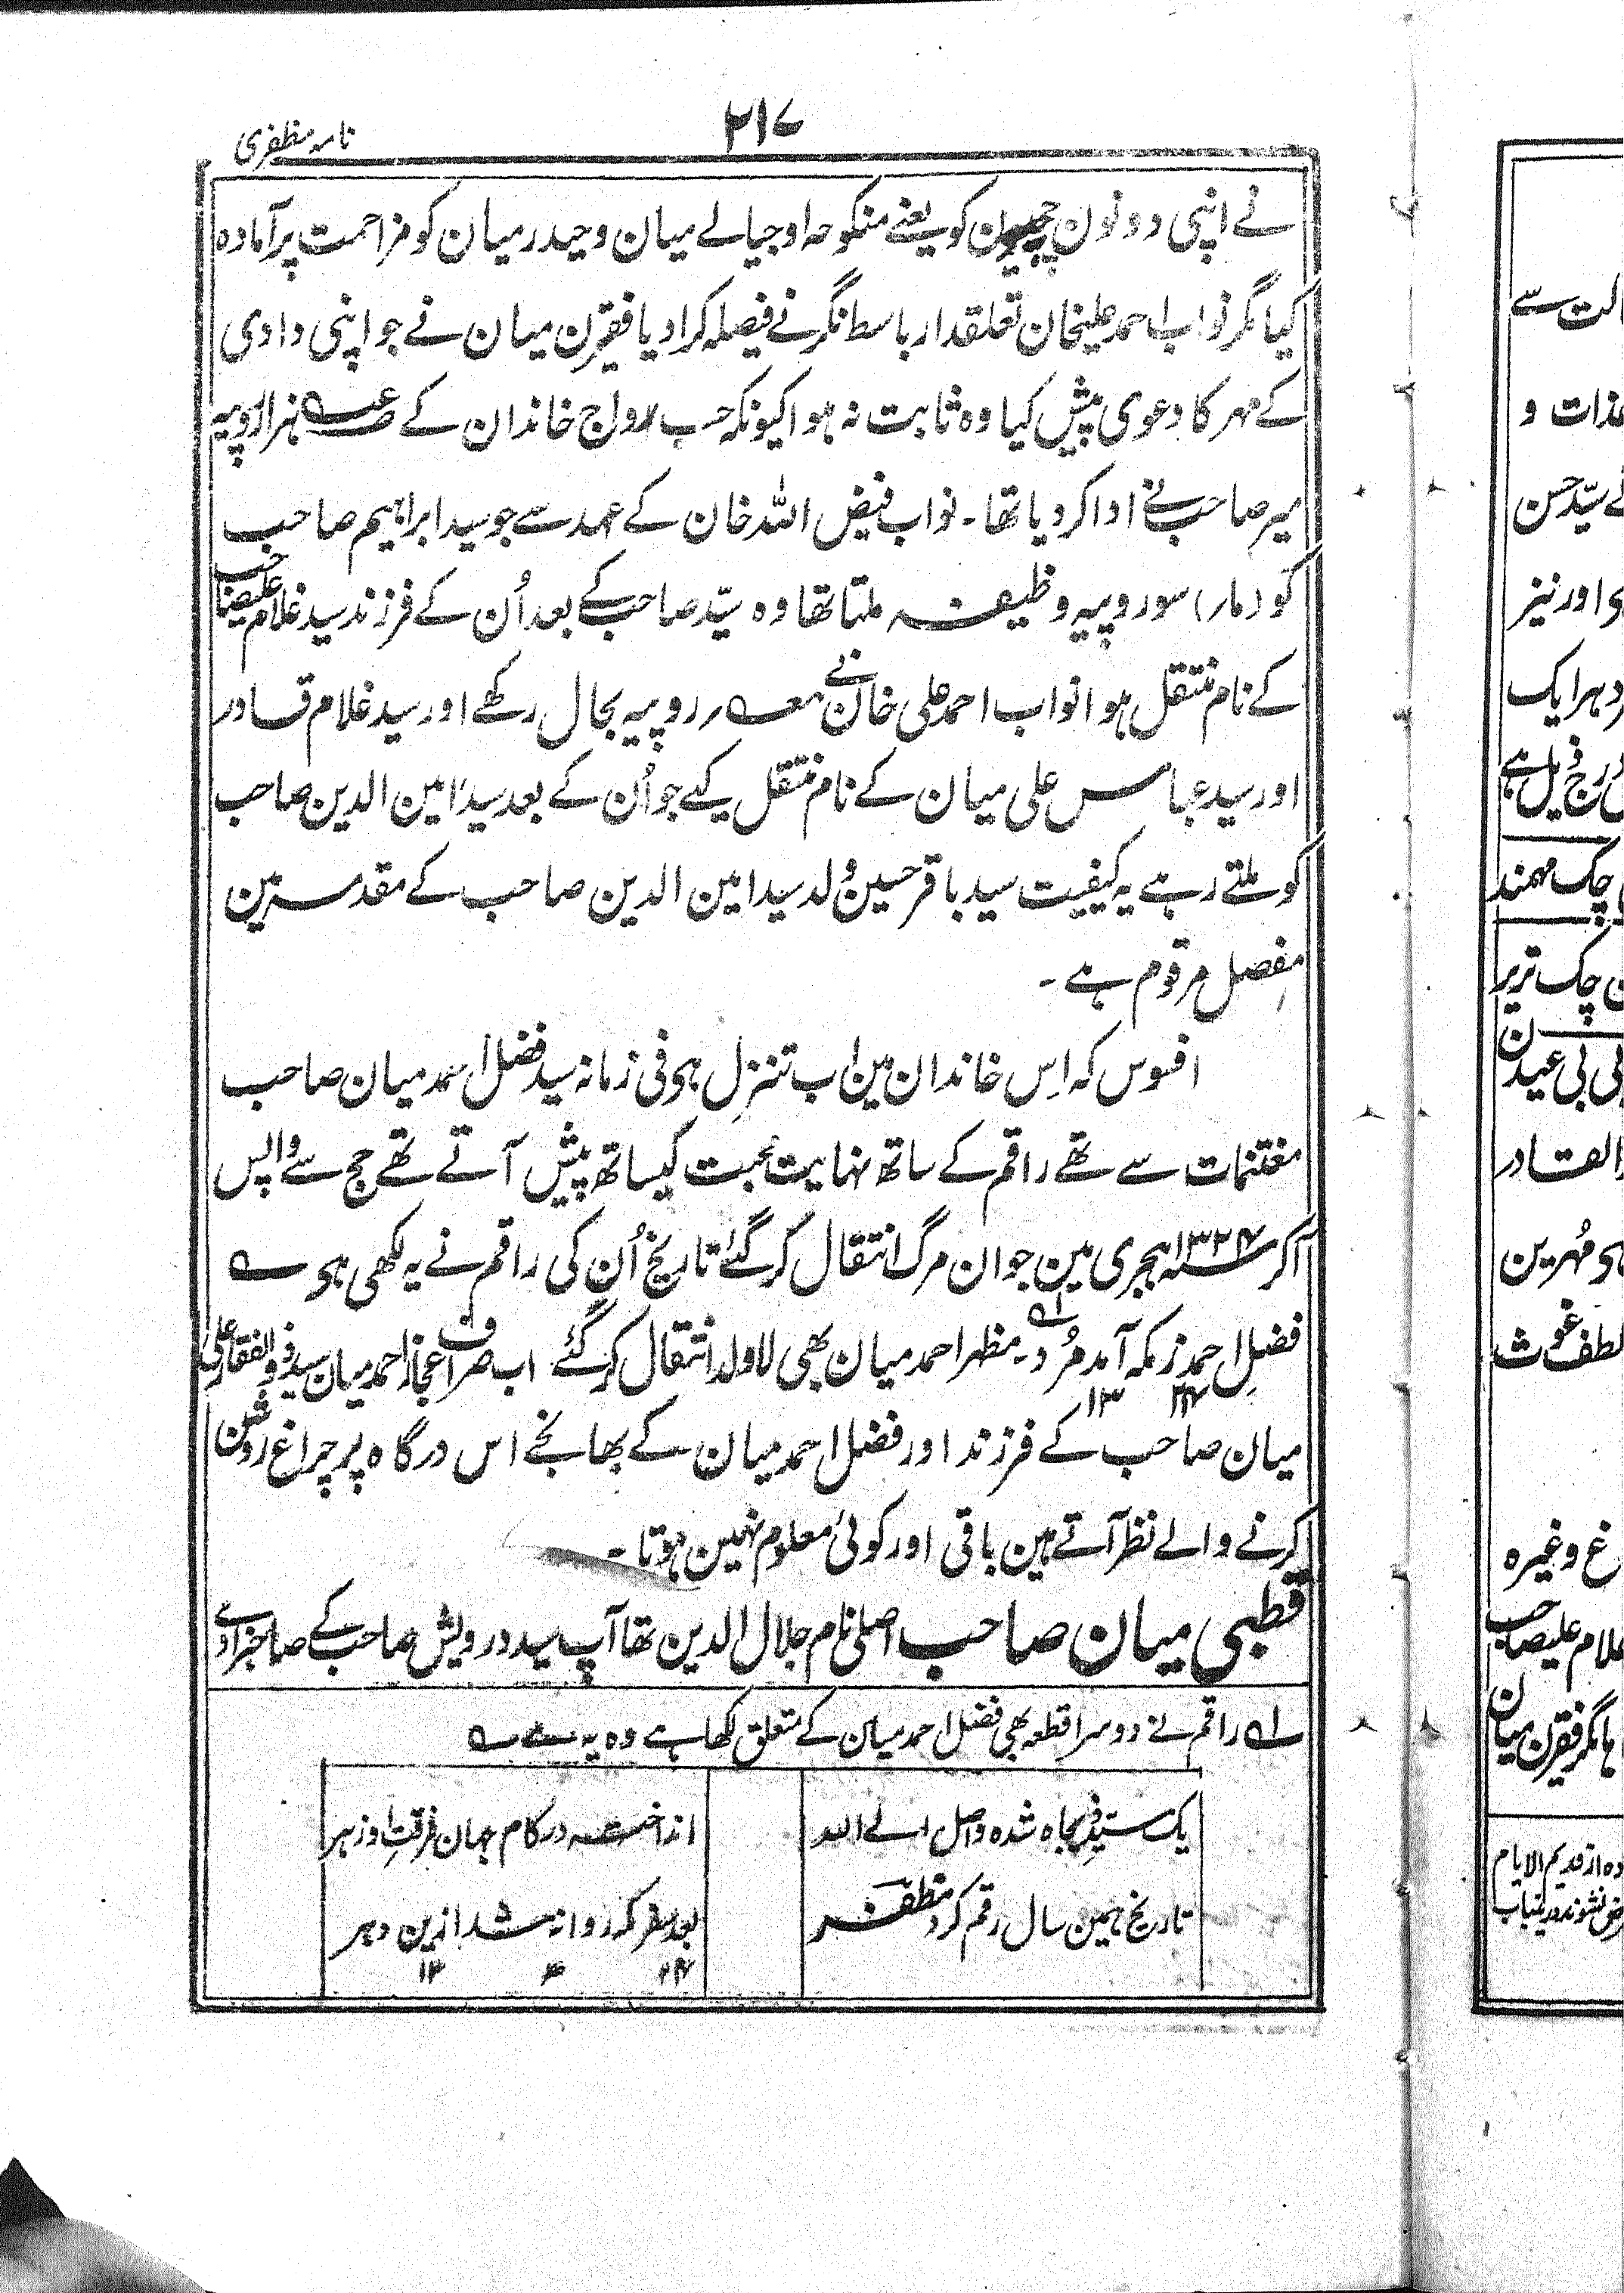 ۲۱۷
نامہ مظفری
نے اپنی دونون چچیون کو یعنے منکوحہ اوجیالے میان و حیدر میان کو مزاحمت پر آمادہ
کیا مگر نواب احمد علیخان تعلقدار باسط نگر نے فیصلہ کرا دیا فقیرن میان نے جو اپنی دادی
کے مہر کا دعوی پیش کیا وہ ثابت نہ ہوا کیونکہ حسب رواج خاندان کے ہزار روپیہ
میر صاحب نے ادا کر دیا تھا۔ نواب فیض اللہ خان کے عہد سے جو سید ابراہیم صاحب
کو (مار) سو روپیہ وظیفہ ملتا تھا وہ سیّد صاحب کے بعد اُن کے فرزند سید غلام علیصاحب
کے نام منتقل ہوا نواب احمد علی خان نے روپیہ بحال رکھے اور سید غلام قادر
اور سید عباس علی میان کے نام منتقل کیے جو اُن کے بعد سید امین الدین صاحب
کو ملتے رہے یہ کیفیت سید باقر حسین ولد سید امین الدین صاحب کے مقدمہ مین
مفصل مرقوم ہے۔
افسوس کہ اِس خاندان مین اب تنزل ہی فی زمانہ سید فضل احمد میان صاحب
مغتنمات سے تھے راقم کے ساتھ نہایت محبت کیساتھ پیش آتے تھے حج سے واپس
آکر ۱۳۲۷ ہجری مین جوان مرگ انتقال کر گئے تاریخ اُن کی راقم نے یہ لکھی ہی ؎
فضلِ احمد ز مکہ آمد مُرد۔ مظہر احمد میان بھی لاولد انتقال کر گئے اب صرف اعجاز احمد میان سید ذوالفقار علی
۱۳ ۲۷
میان صاحب کے فرزند اور فضل احمد میان کے بھانجے اس درگاہ پر چراغ روشن
کرنے والے نظر آتے ہین باقی اور کوئی معلوم نہین ہوتا۔
قطبی میان صاحب اصلی نام جلال الدین تھا آپ سید درویش صاحب کے صاحبزادے
؎۱ راقم نے دوسرا قطعہ بھی فضل احمد میان کے متعلق لکھا ہے وہ یہ ہے ؎
یک سید ذیجاہ شدہ واصل الے اللہ
انداختہ در کام جہان فرقتِ او زہر
تاریخ ہمین سال رقم کرد مظفر
بعد سفر مکہ روانہ شد ازین دہر
۱۳ ھ ۲۷
الت سے
غذات و
ے سیّد حسن
ی اور نیز
د ہر ایک
درج ذیل ہے
چک مہمند
چک تریر
بی بی عیدن
القادر
و مُہرین
لطف غوث
غ وغیرہ
غلام علیصاحب
ہا مگر فقیرن میان
دہ از قدیم الایام